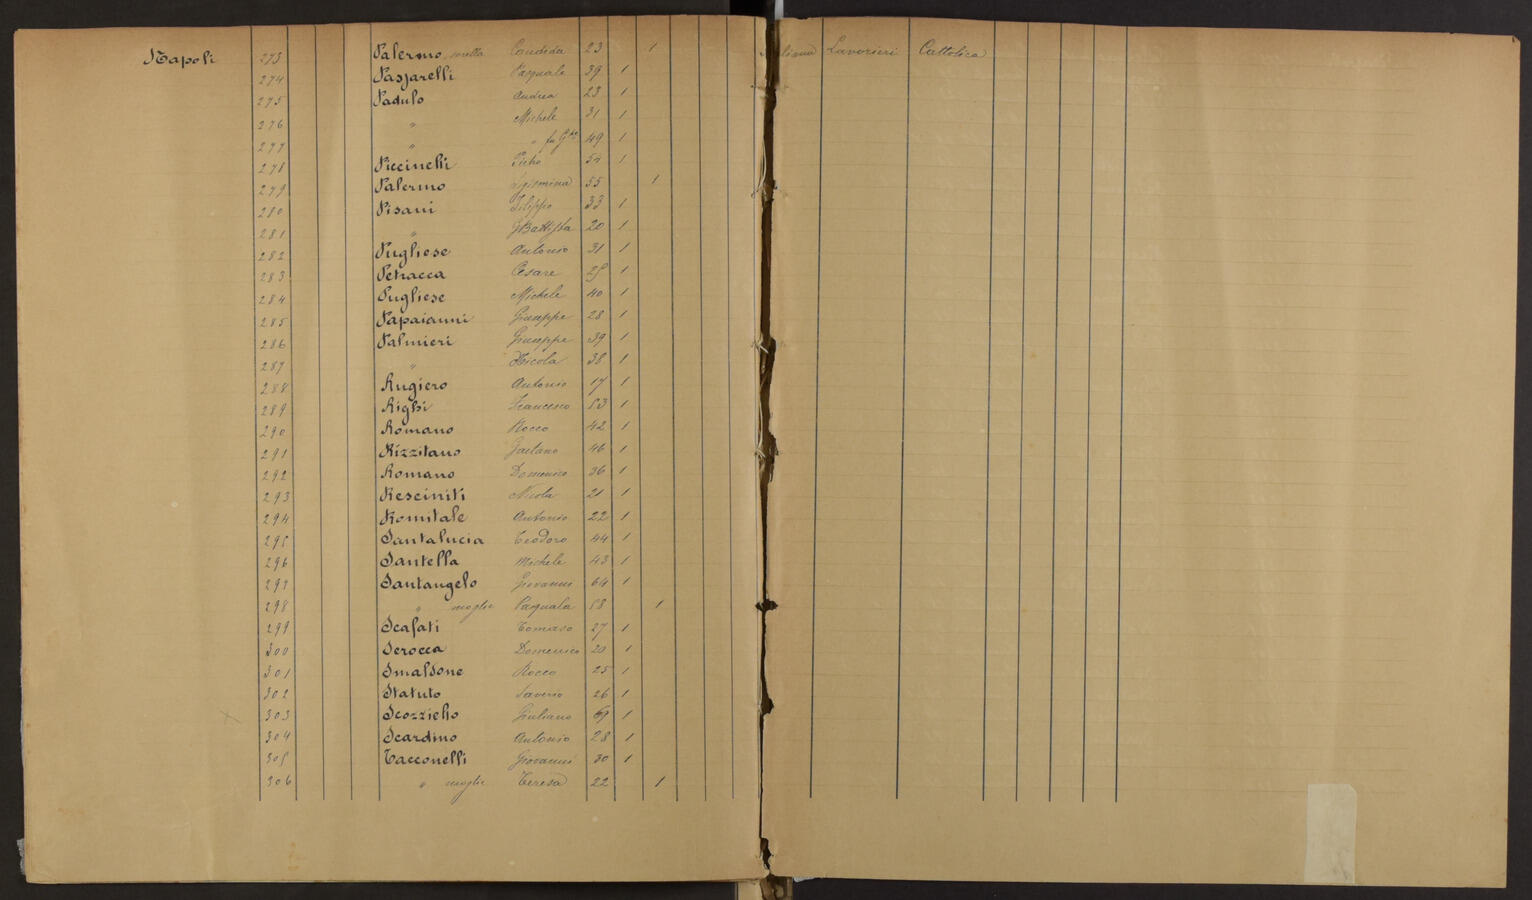 Napoli 273 Palermo sorella Candida 23 1 Italiana Lavorieri Cattolica
274 Pasparelli Pasquale 39 1
275 Padulo Andrea 23 1
276 " Michele 31 1
277 " " fu Gbe 49 1
278 Piccinelli Pietro 54 1
279 Palermo 55 1
280 Pisani Filippo 33 1
281 " GBattista 20 1
282 Pugliese Antonio 31 1
283 Petracca Cesare 25 1
284 Pugliese Michele 40 1
285 Papaianni Giuseppe 28 1
286 Palmieri Giuseppe 39 1
287 " Nicola 38 1
288 Rugiero Antonio 17 1
289 Righi Francesco 53 1
290 Romano Rocco 42 1
291 Rizzitano Gaetano 46 1
292 Romano Domenico 36 1
293 Resciniti Nicola 21 1
294 Romitale Antonio 22 1
295 Santalucia Teodoro 44 1
296 Santella Michele 43 1
297 Santangelo Giovanni 64 1
298 " moglie Pasquala 58 1
299 Scafati Tomaso 27 1
300 Serocca Domenico 20 1
301 Smaldone Rocco 25 1
302 Statuto Saverio 26 1
303 Scozziello Giuliano 1
304 Scardino Antonio 28 1
305 Tacconelli Giovanni 30 1
306 " moglie Teresa 22 1